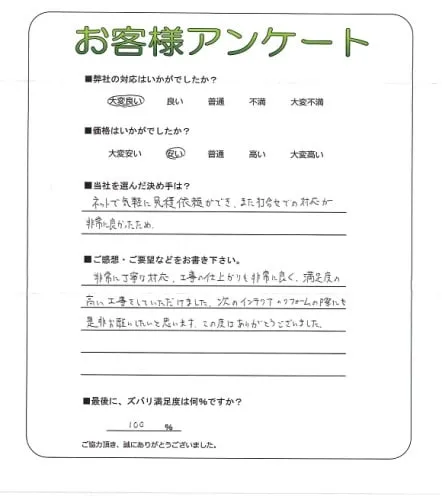 お客様アンケート
■弊社の対応はいかがでしたか?
大変良い 良い 普通 不満 大変不満
■価格はいかがでしたか?
大変安い 安い 普通 高い 大変高い
■当社を選んだ決め手は?
ネットで気軽に見積依頼ができ、また打合せでの対応が
非常に良かったため.
■ご感想・ご要望などをお書き下さい。
非常に丁寧な対応、工事の仕上がりも非常に良く、満足度の
高い工事をしていただけました。次のインテリアのリフォームの際にも
是非お願いしたいと思います。この度はありがとうございました。
■最後に、ズバリ満足度は何%ですか?
100 %
ご協力頂き、誠にありがとうございました。